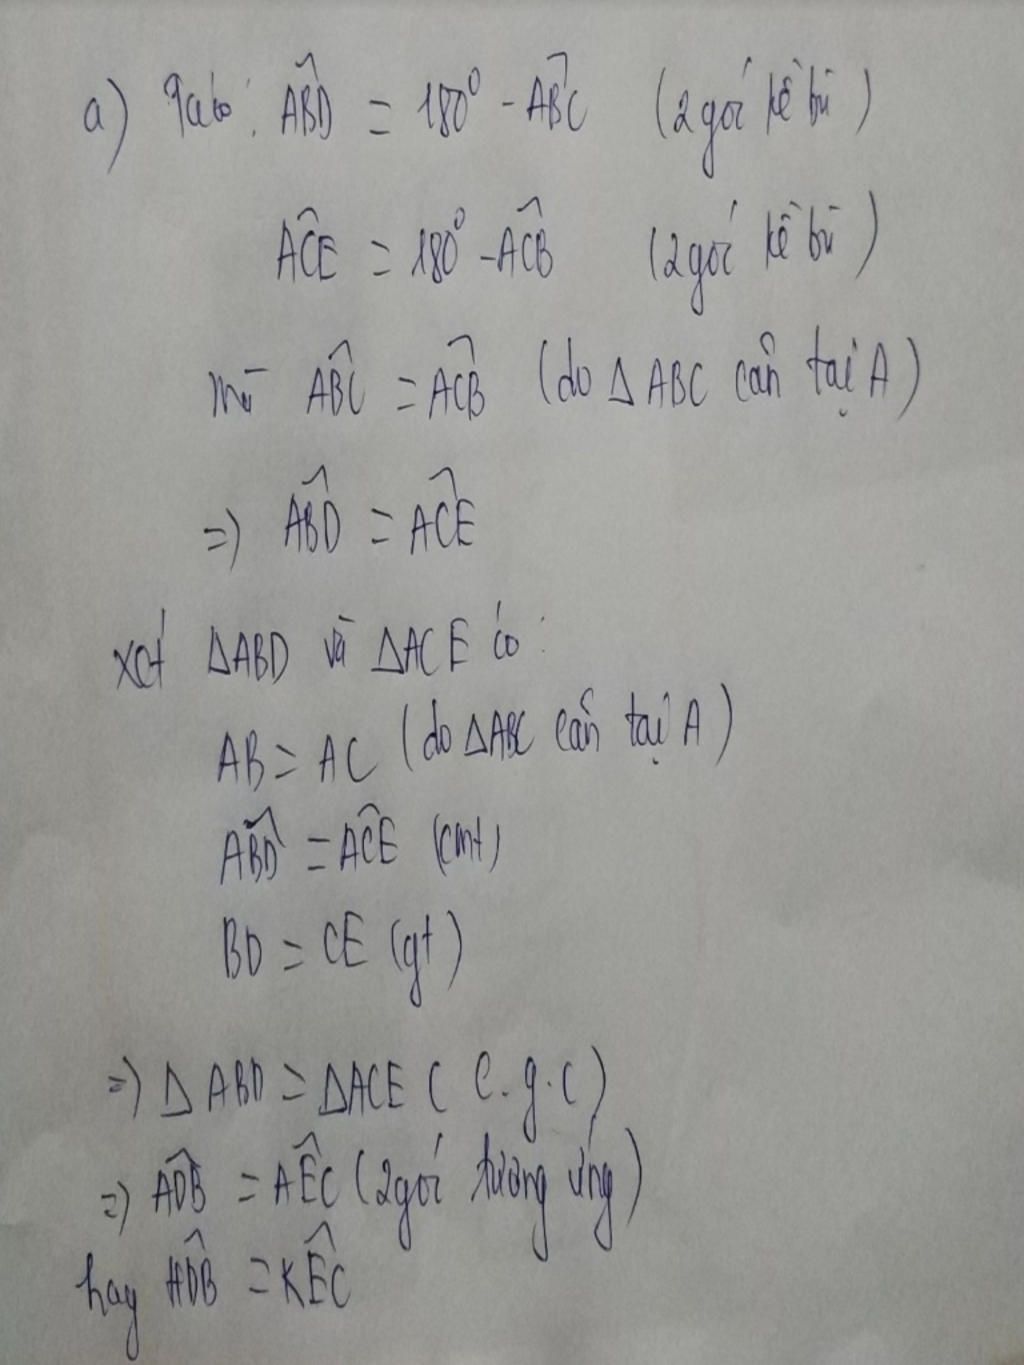 a) Ta có: ABD̂ = 180° - ABĈ (2 góc kề bù)
AĈE = 180° - AĈB (2 góc kề bù)
mà AB̂C = AĈB (do ΔABC cân tại A)
=) AB̂D = AĈE
xét ΔABD và ΔACE có:
AB = AC (do ΔABC cân tại A)
AB̂D = AĈE (cmt)
BD = CE (gt)
=) ΔABD = ΔACE (c.g.c)
=) AD̂B = AÊC (2 góc tương ứng)
hay HD̂B = KÊC